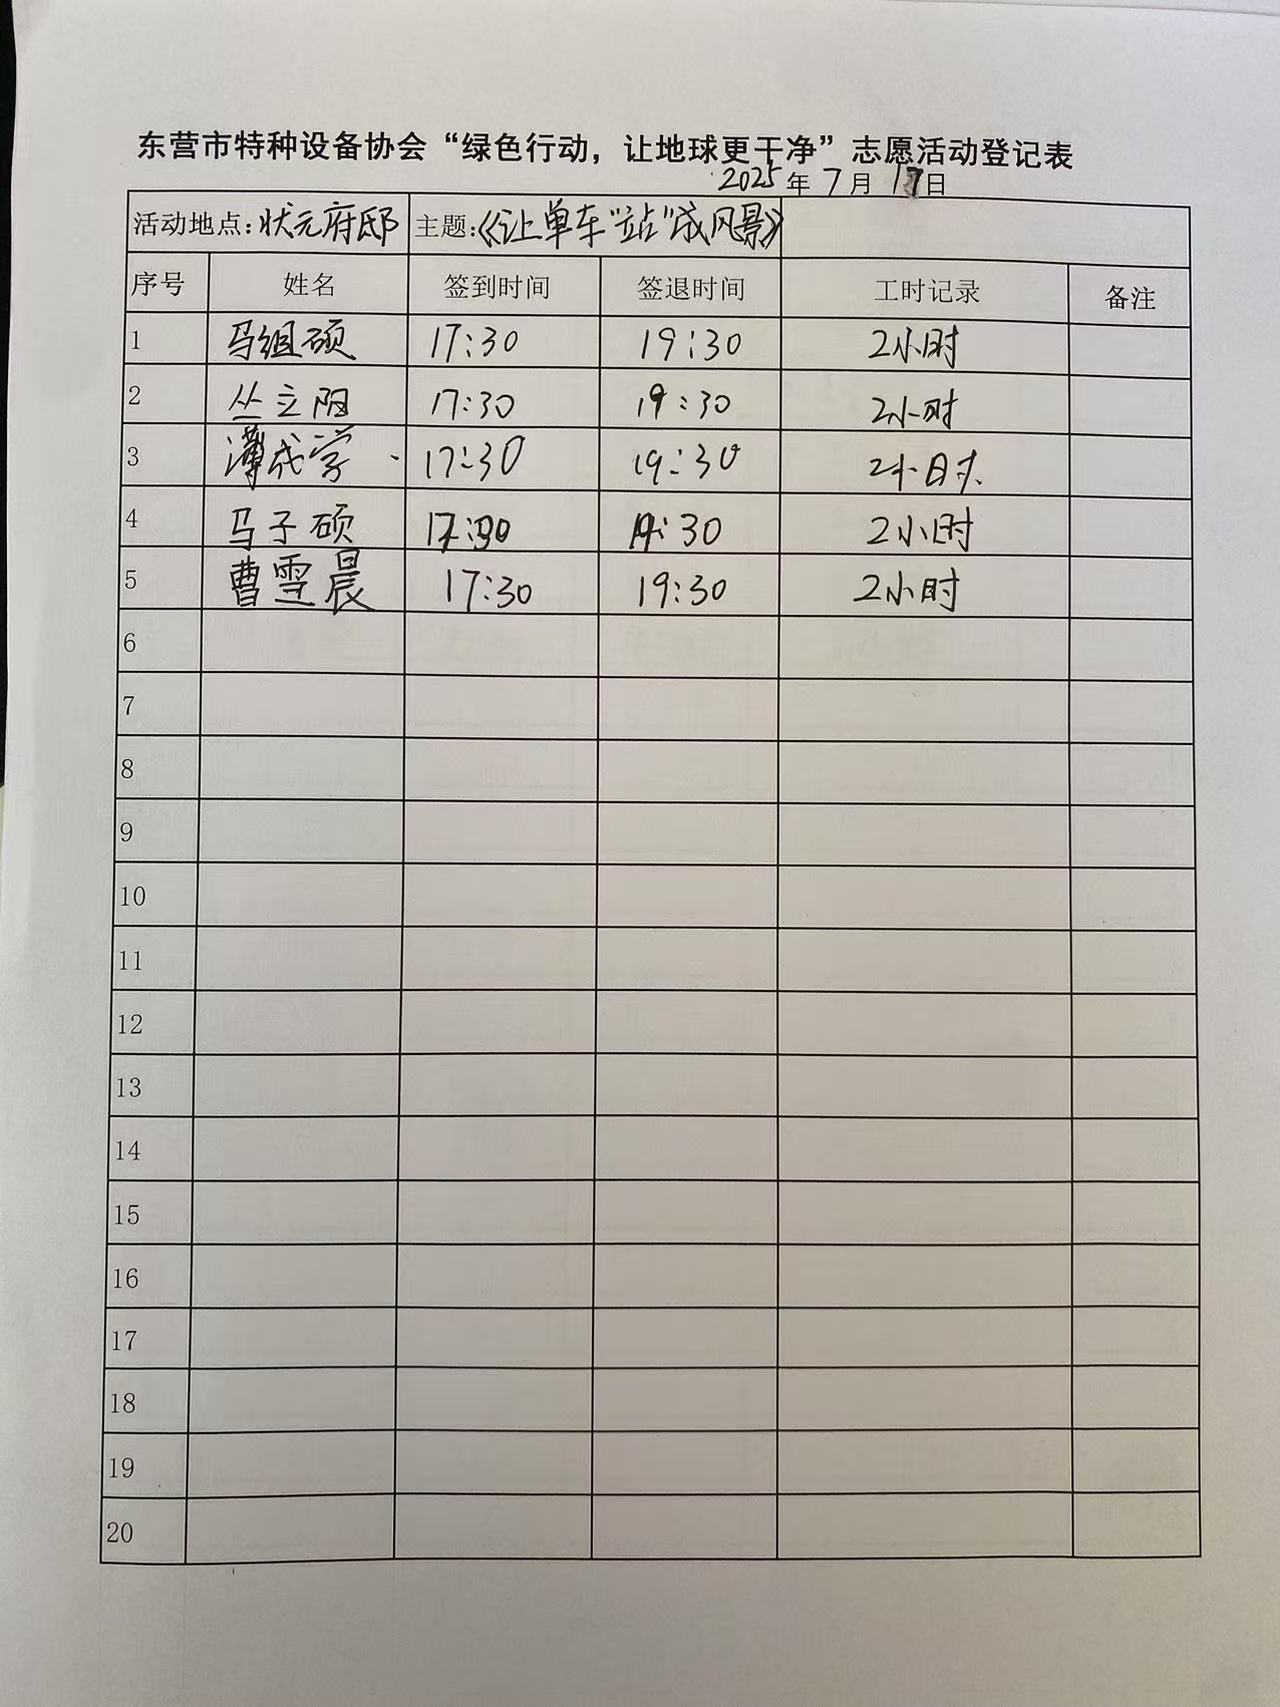 东营市特种设备协会“绿色行动，让地球更干净”志愿活动登记表
2025年7月17日
活动地点：状元府邸 主题：《让单车“站”成风景》
序号 姓名 签到时间 签退时间 工时记录 备注
1 马组硕 17:30 19:30 2小时
2 丛立阳 17:30 19:30 2小时
3 薄成学 17:30 19:30 2小时
4 马子硕 17:30 19:30 2小时
5 曹雪晨 17:30 19:30 2小时
6
7
8
9
10
11
12
13
14
15
16
17
18
19
20